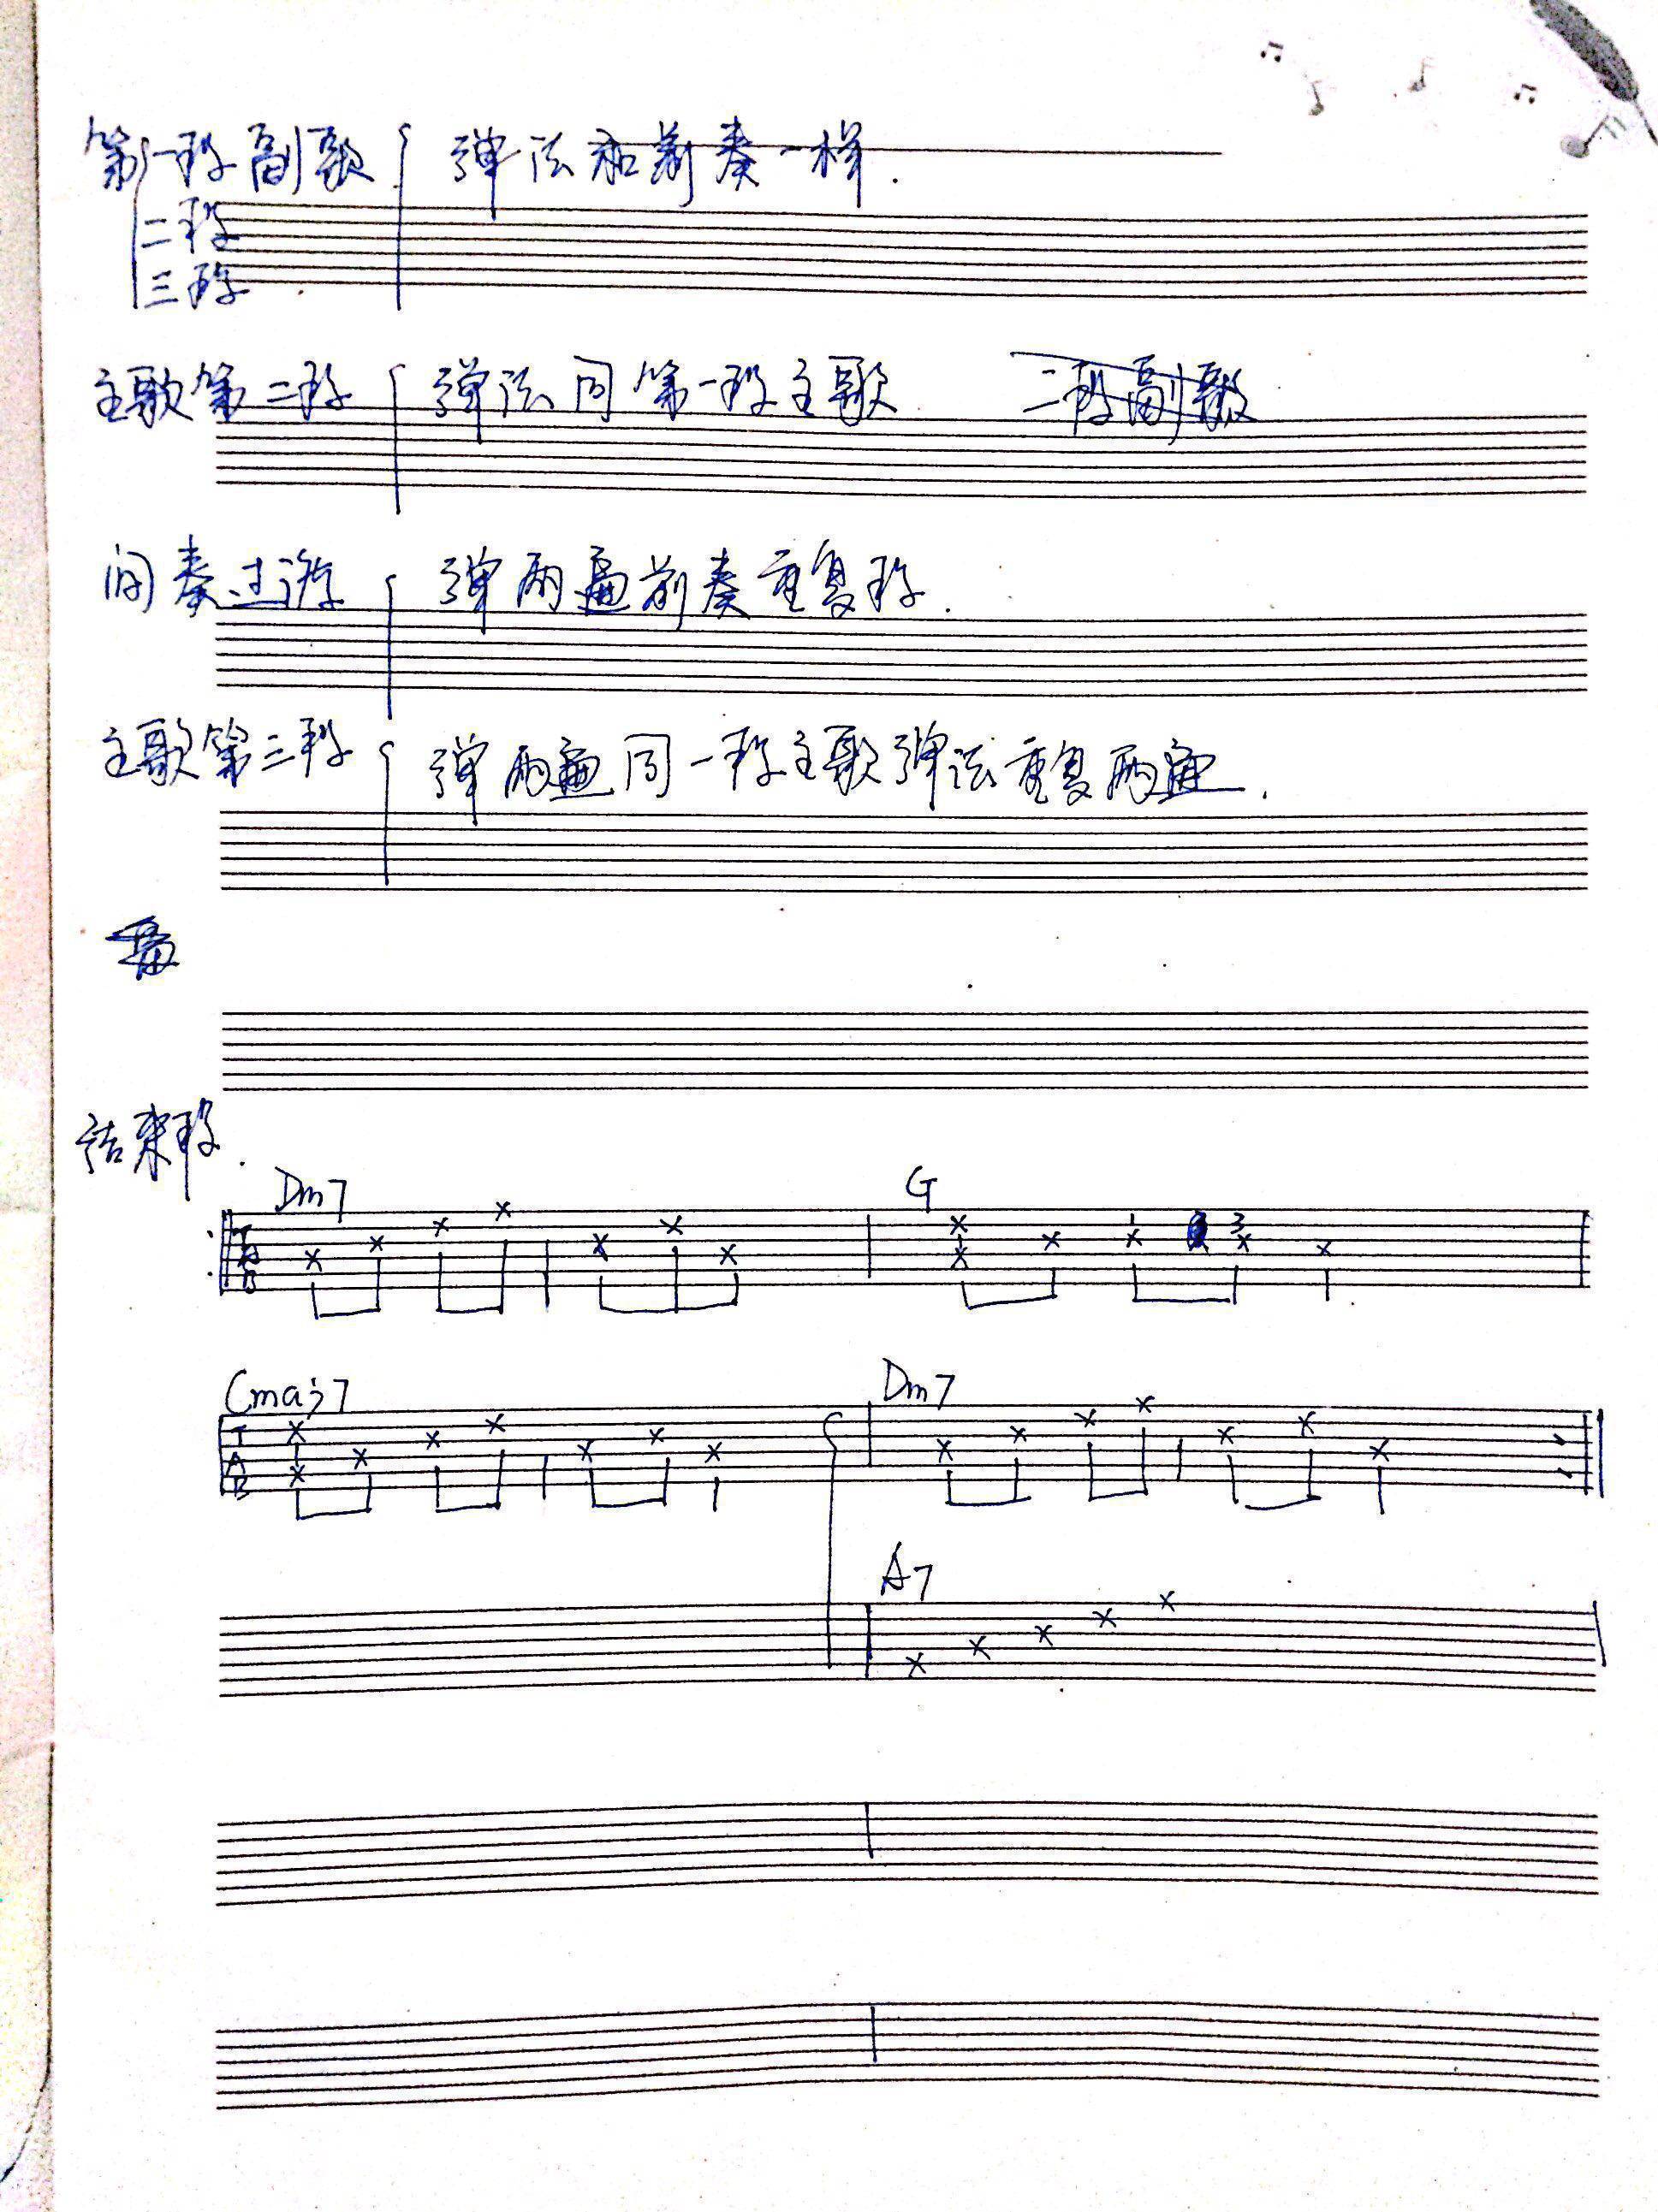 第一段副歌 弹法和前奏一样.
二段
三段.
主歌第二段 弹法同第一段主歌 二段副歌
间奏过 弹两遍前奏重复段.
主歌第三段 弹两遍同一段主歌弹法重复两遍.
结束段.
Dm7 G
T
A
B
3
Cmaj7 Dm7
T
A
B
A7